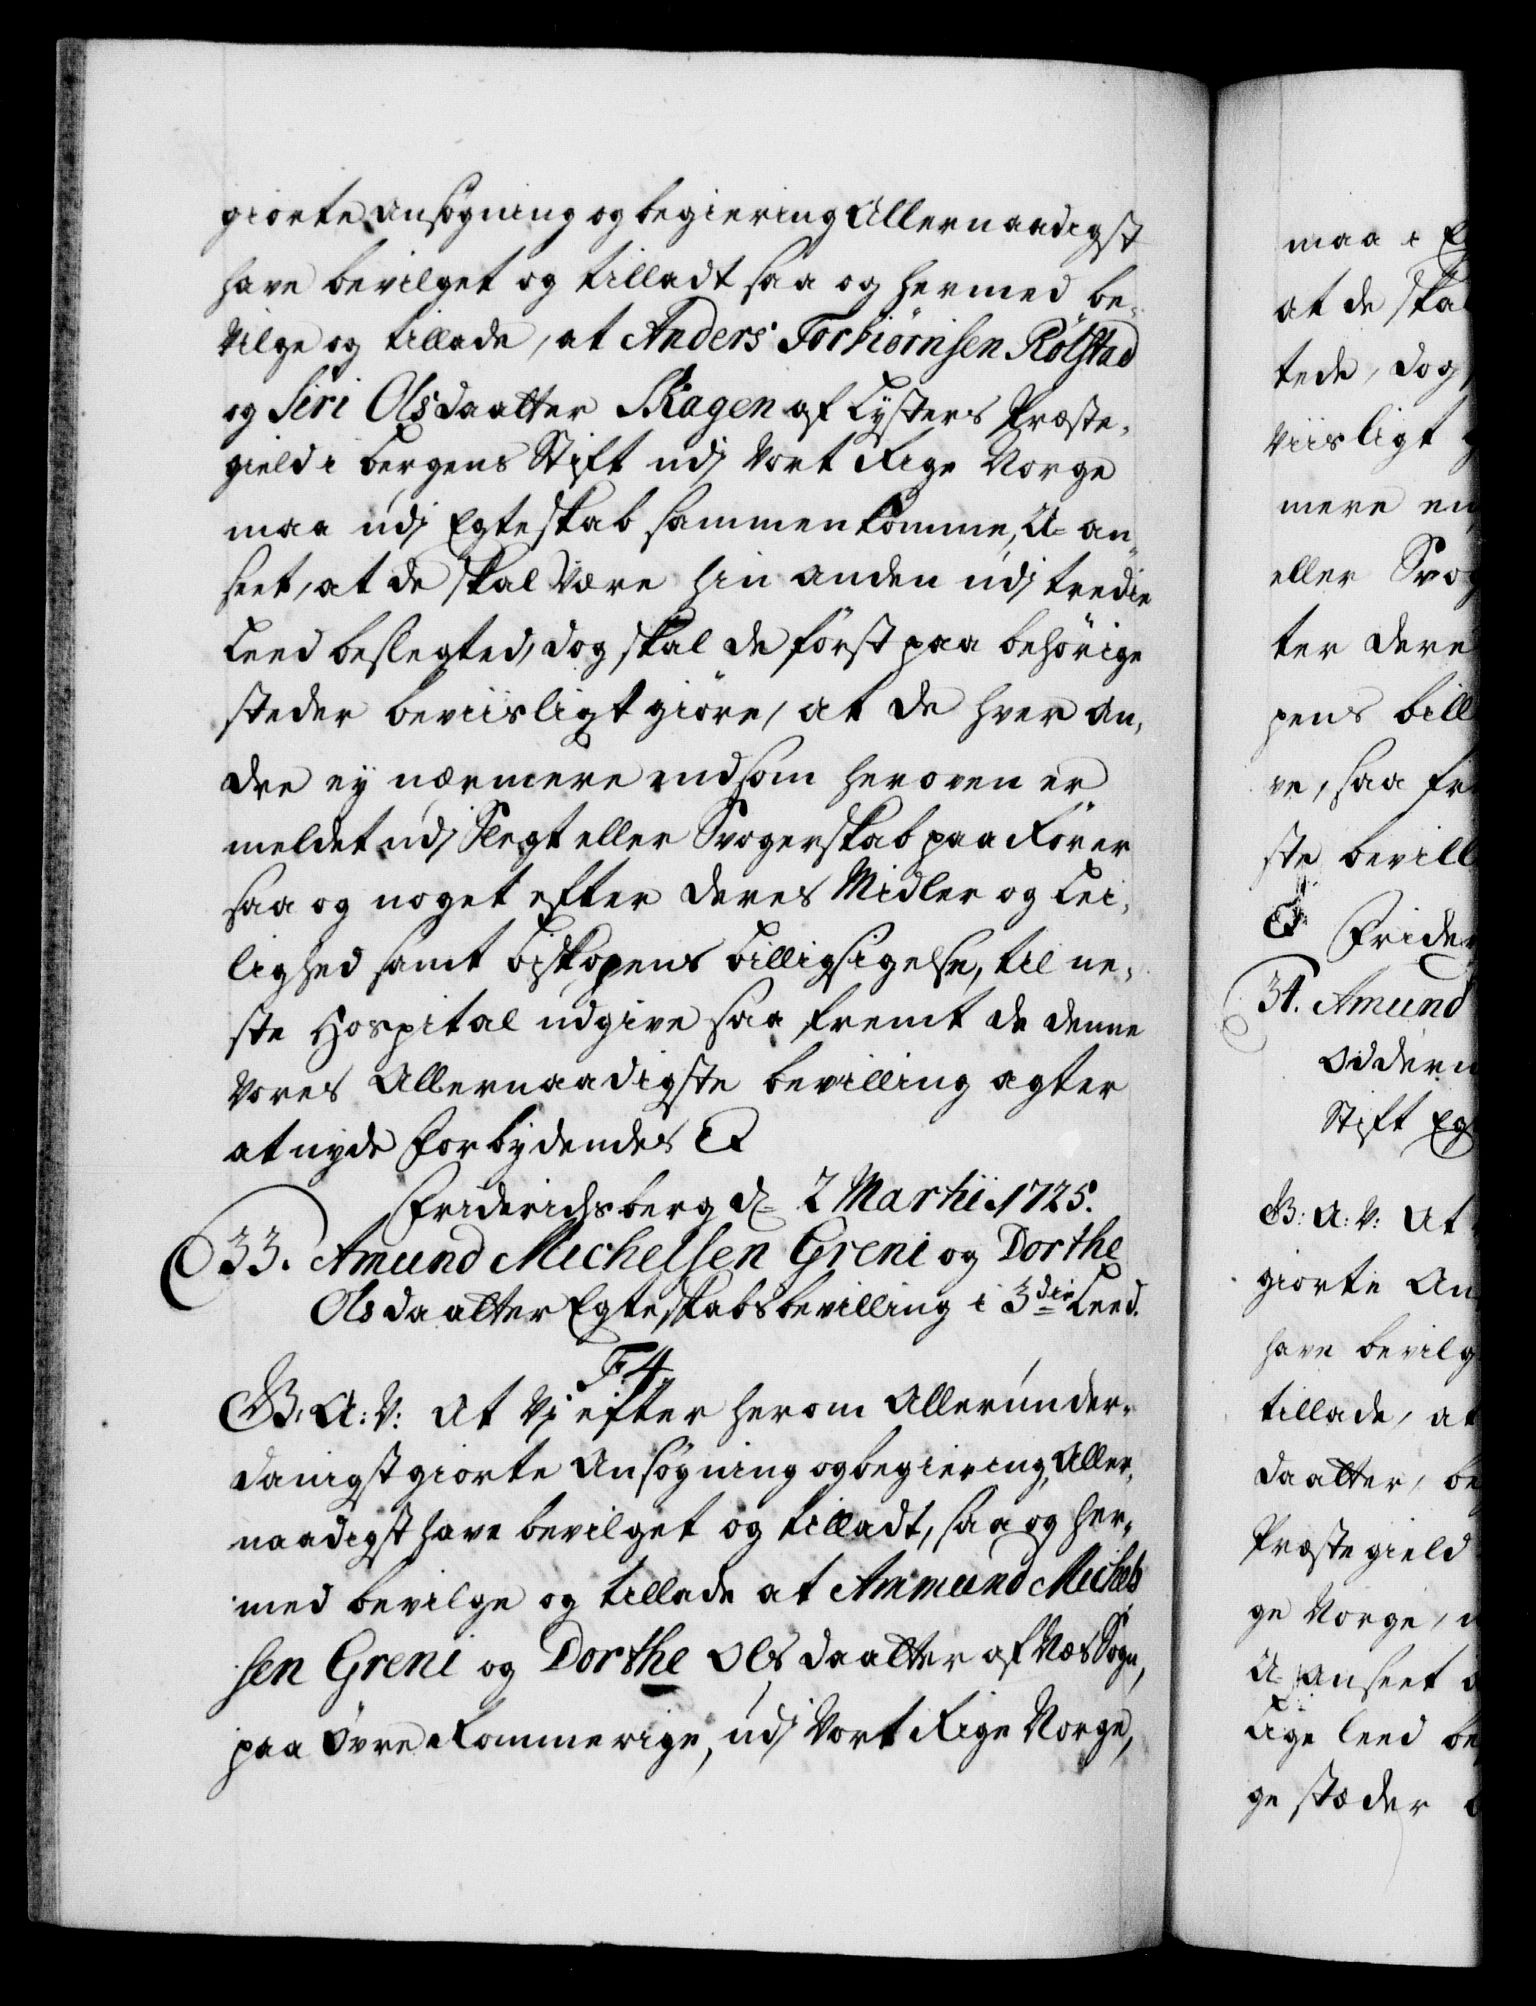 giorte Ansøgning og begiering Allernaadigst
have bevilget og tilladt saa og hermed be-
vilge og tillade, at Anders Torbiørnsen Rølstad
og Siri Olsdaatter Skagen af Lysters Præste-
gield i Bergens Stift udj Vort Rige Norge
maa udj Egteskab sammenkomme, U-an-
seet, at de skal være hin anden udj tredie
Leed beslegted, dog skal de først paa behørige
steder beviisligt giøre, at de hver an-
dre ey nærmere end som heroven er
meldet udj Slegt eller Svogerskab paarører
saa og noget efter deres Midler og Lei-
lighed samt Biskopens billigsigelse, til ne-
ste Hospital udgive saa fremt de denne
Vores Allernaadigste bevilling agter
at nyde Forbydendes &
Friderichsberg d. 2 Martii 1725.
33. Amund Michelsen Greni og Dorthe
Olsdaatter Egteskabsbevilling i 3die Leed.
F: 4.
G: A: V: At Vi efter herom Allerunder-
danigst giorte Ansøgning og begiering, Aller-
naadigst have bevilget og tilladt, saa og her-
med bevilge og tillade at Ammund Michel-
sen Greni og Dorthe Olsdaatter af Næs Sogn,
paa Øvre Rommerige, udj Vort Rige Norge,
maa i
at de
tede, dog
viisligt
mere en
eller
ter dere
pens bill
ve, saa fr
ste bevill
& Frider
34. Amund
Oddern
Stift Eg
G: A: V: At
giorte An
have bevilg
tillade, at
daatter, be
Præstegield
ge Norge, u
U-anseet
Lige leed be
ge stæder